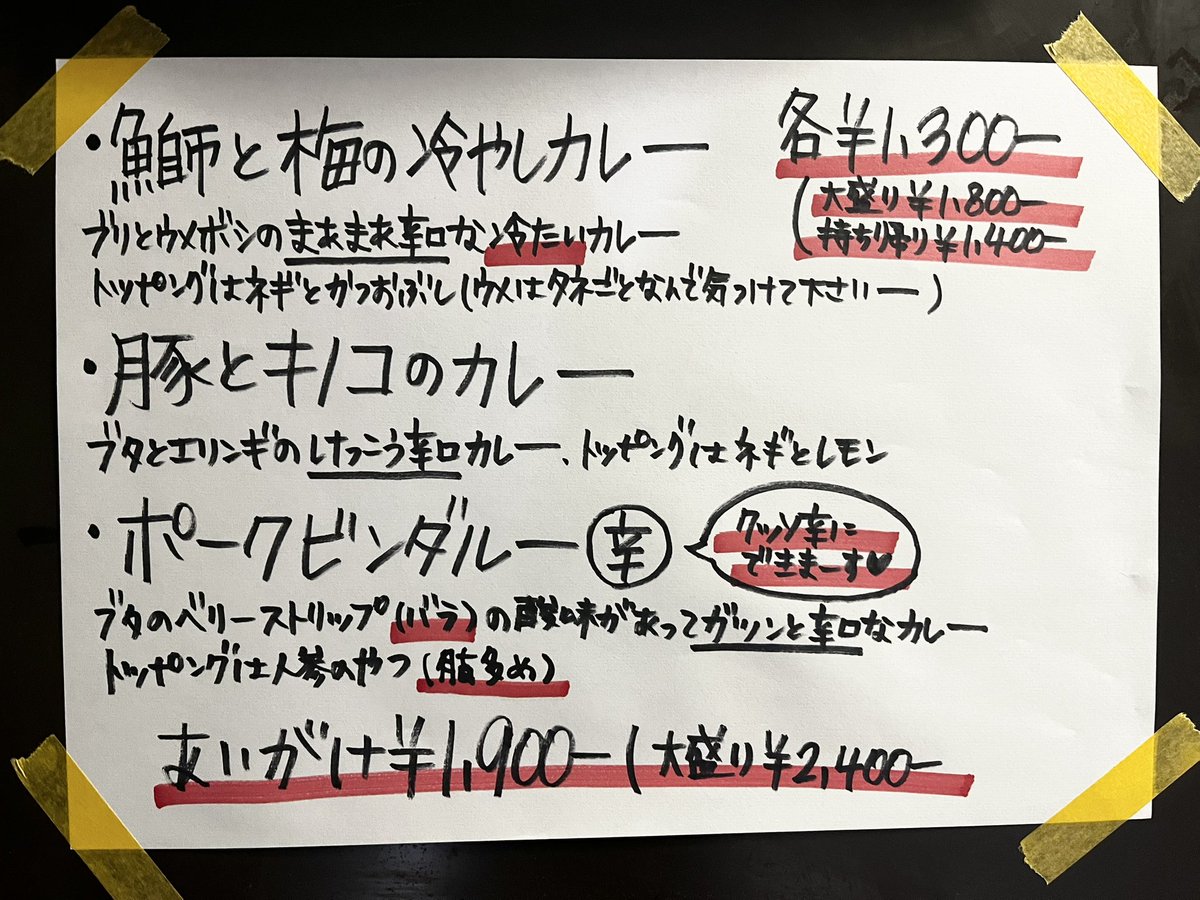 ・鰤と梅の冷やしカレー
各¥1,300ー
(大盛り¥1,800ー
(持ち帰り¥1,400ー
ブリとウメボシのまあまあ辛口な冷たいカレー
トッピングはネギとかつおぶし(ウメはタネごとなんで気つけて下さいー)
・豚とキノコのカレー
ブタとエリンギのけっこう辛口カレー、トッピングはネギとレモン
・ポークビンダルー 辛
クッソ辛に
できまーす♥
ブタのベリーストリップ(バラ)の酸味があってガツンと辛口なカレー
トッピングは人参のやつ(脂多め)
あいがけ¥1,900ー(大盛り¥2,400ー